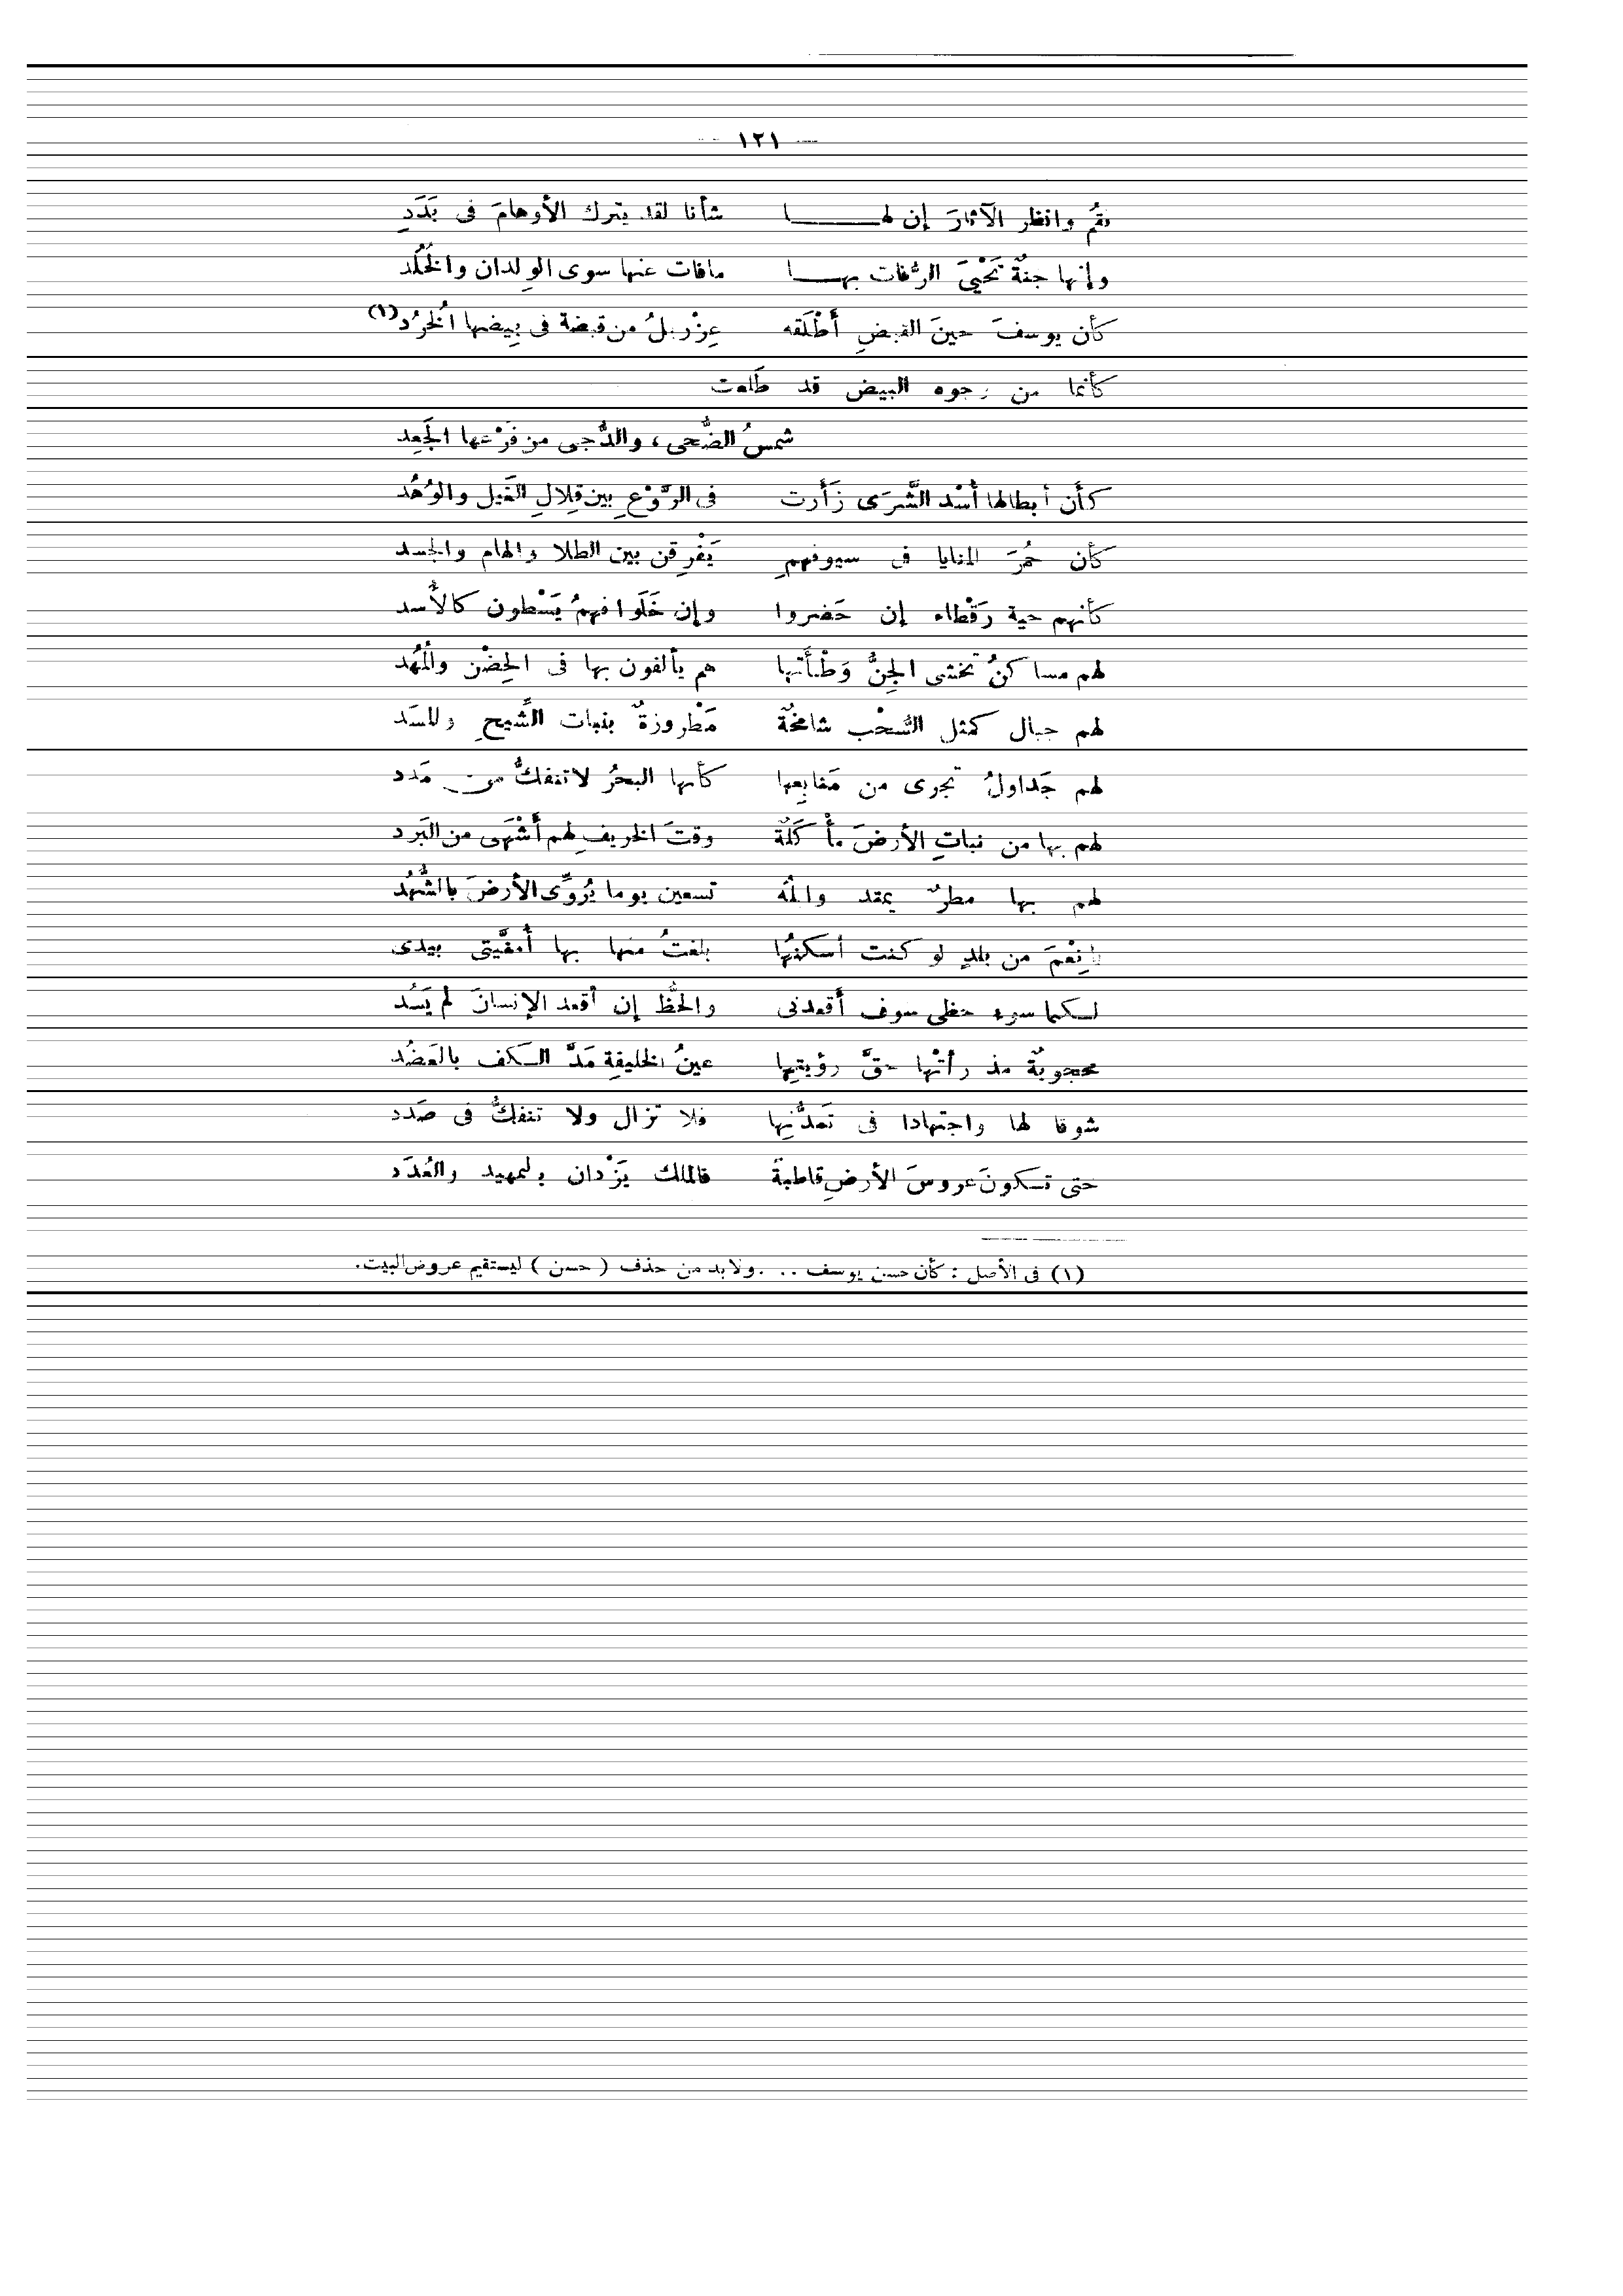 — ١٢١ —
فقُم وانظر الآثارَ إن لهـــا شأنا لقد يترك الأوهامَ فى بَدَدِ
وإنها جنةٌ تَحْيَىَ الرُّفات بهـــا مافات عنها سوى الوِلدان والخُلُد
كأن يوسفَ حينَ القبضِ أَطْلَقه عِزْربلُ من قبضة فى بِيضها الخُرُد (١)
كأنما من وجوه البيض قد طَلعت
شمسُ الضُّحى ، والدُّجى من فَرْعها الجَعِد
كأن أبطالها أُسْد الشَّرَى زَأَرت فى الرَّوْعِ بين قِلالِ الغَيل والوُهُد
كأن حُمرَ المنايا فى سيوفهمِ يَفْرِقن بين الطلا والهام والجسد
كأنهم حية رَقْطاء إن حَضروا وإن خَلَوا فهمُ يَسْطون كالأُسد
لهم مساكنُ تخشى الجِنُّ وَطْأَتها هم يألفون بها فى الحِضْن والمُهُد
لهم جبال كمثل السُّحْب شامخةٌ مَطْروزةٌ بنبات الشَّيح والمسَد
لهم جَداولُ تجرى من مَنابِعها كأنها البحرُ لاتنفكُّ من مَدد
لهم بها من نباتِ الأرضَ مأْكَلَةٌ وقتَ الخريفِ لهم أَشْهَى من البَرد
لهم بها مطرٌ يمتد والمُه تسعين يوما يُروِّى الأرضَ بالشُّهُد
يا نِعْمَ من بلدٍ لو كنت أسكنُها بلغتُ منها بها أُمنَّيتى بيدى
لكنما سوء حظى سوف أَقعدنى والحَظُّ إن أقعد الإنسانَ لم يَسُد
محجوبةٌ مذ رأتْها حقَّ رؤيتِها عينُ الخليفةِ مَدَّ الكف بالعَضُد
شوقا لها واجتهادا فى تَمدُّنِها فلا تزال ولا تنفكُّ فى صَدد
حتى تكونَ عروسَ الأرضِ قاطبةً فالملك يَزْدان بالتمهيد والعُدَد
(١) فى الأصل : كأن حسن يوسف .. . ولابد من حذف ( حسن ) ليستقيم عروض البيت.